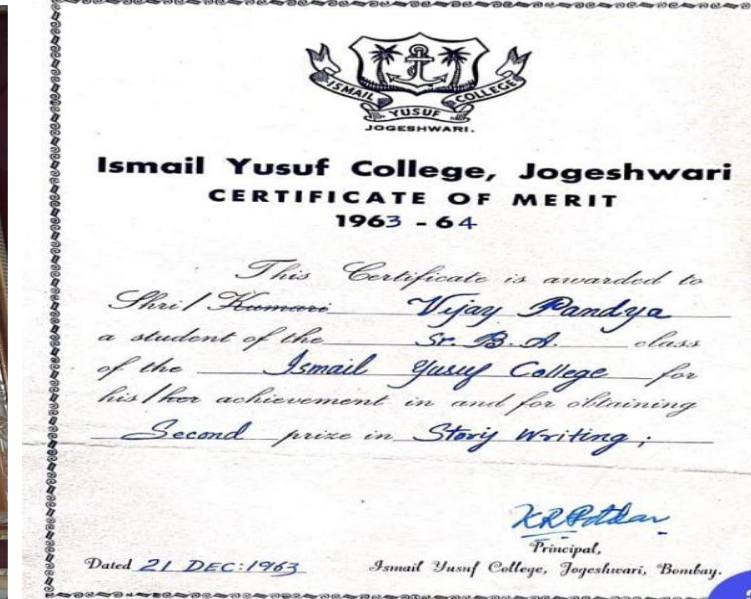 ISMAIL YUSUF COLLEGE
JOGESHWARI.
Ismail Yusuf College, Jogeshwari
CERTIFICATE OF MERIT
1963 - 64
This Certificate is awarded to
Shri/ Kumari Vijay Pandya
a student of the Sr. B.A. class
of the Ismail Yusuf College for
his/her achievement in and for obtaining
Second prize in Story Writing;
K R Potdar
Principal,
Dated 21 DEC:1963 Ismail Yusuf College, Jogeshwari, Bombay.